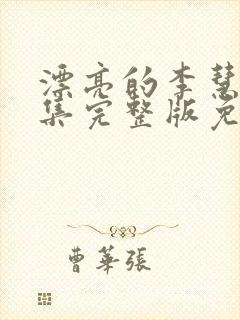 漂亮的李慧
集完整版免
曹華張